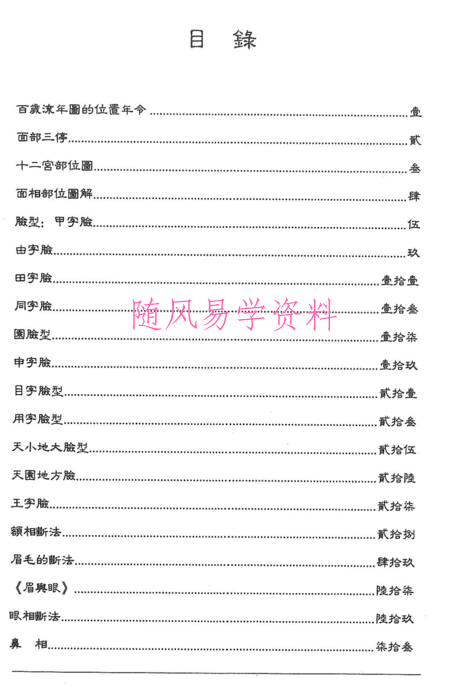 目 錄
百歲流年圖的位置年令........壹
面部三停........貳
十二宮部位圖........叁
面相部位圖解........肆
臉型：甲字臉........伍
由字臉........玖
田字臉........壹拾壹
同字臉........壹拾叁
随风易学资料
圓臉型........壹拾柒
申字臉........壹拾玖
目字臉型........貳拾壹
用字臉型........貳拾叁
天小地大臉型........貳拾伍
天圓地方臉........貳拾陸
王字臉........貳拾柒
額相斷法........貳拾捌
眉毛的斷法........肆拾玖
《眉與眼》........陸拾柒
眼相斷法........陸拾玖
鼻 相........柒拾叁